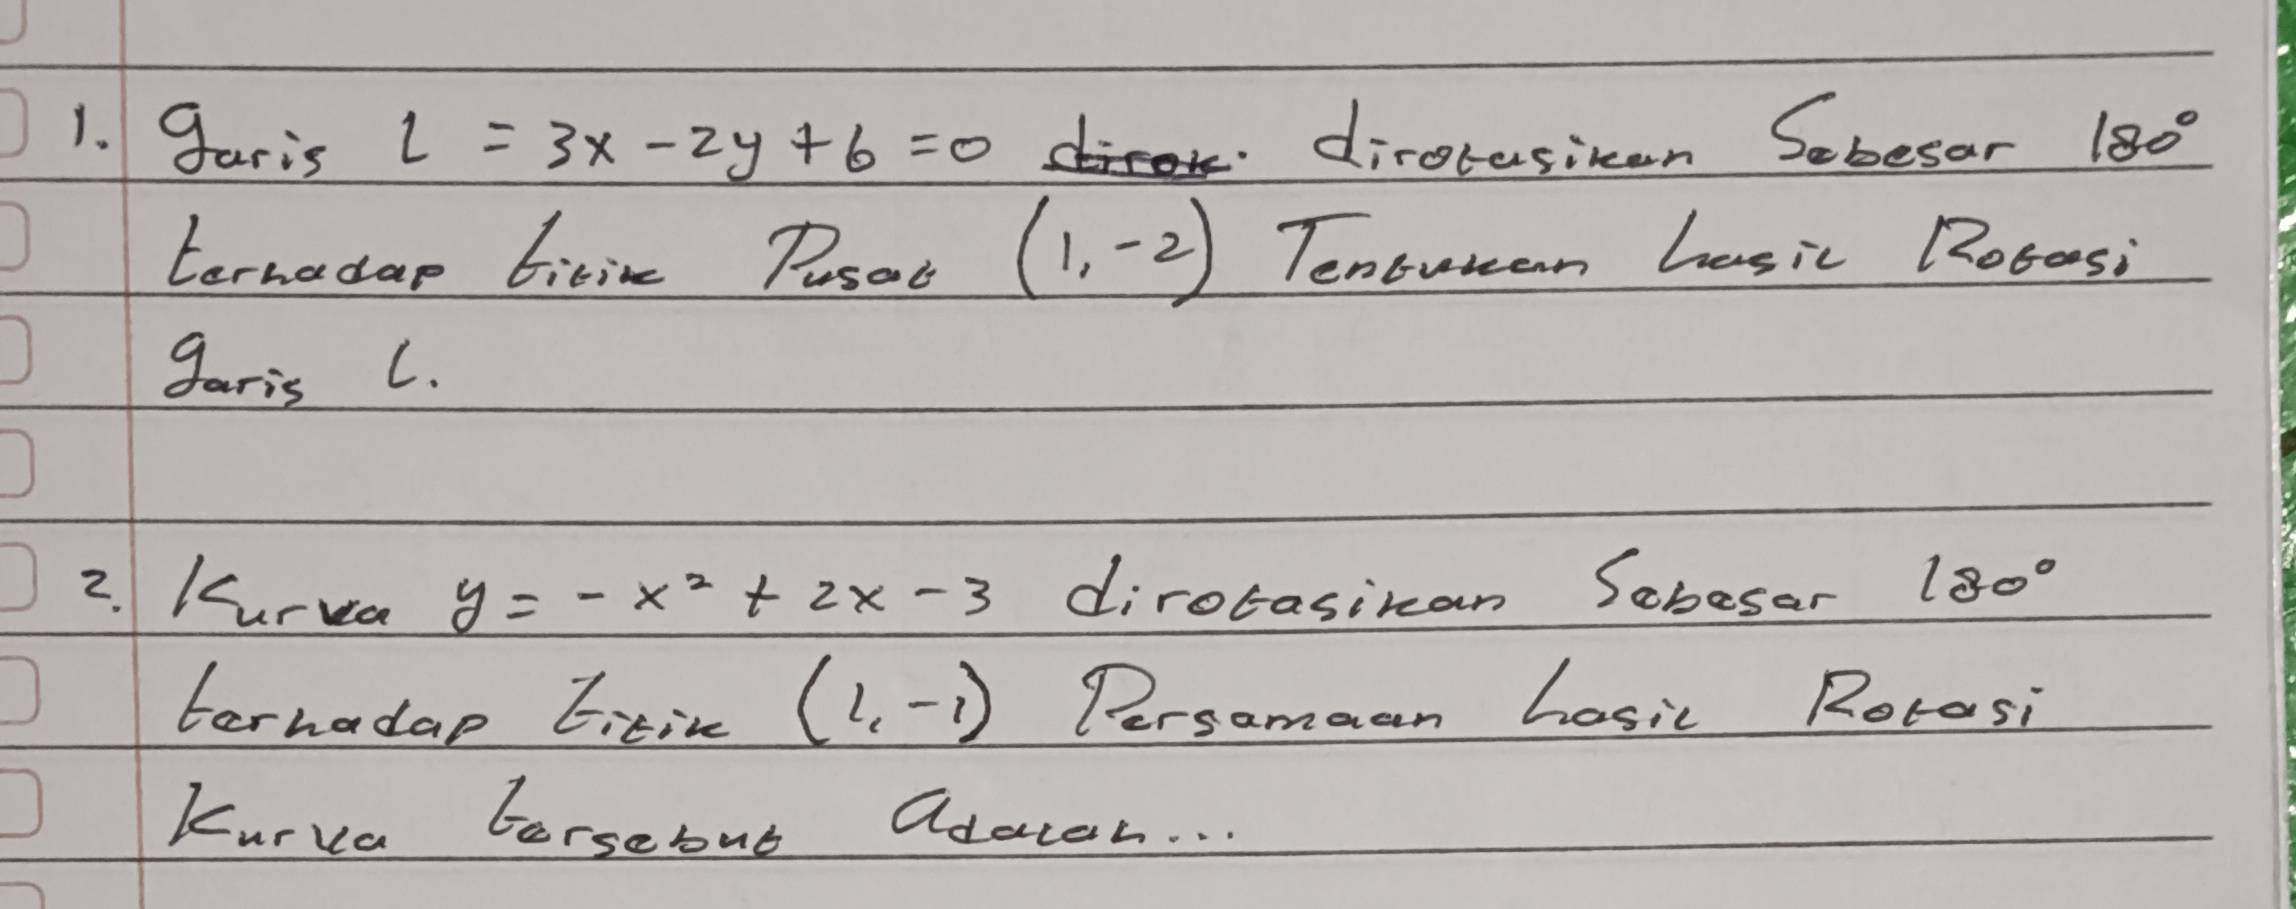 1. Garis l = 3x - 2y + 6 = 0 dirotasikan Sebesar 180°
terhadap titik Pusat (1, -2) Tentukan hasil Rotasi
garis l.
2. Kurva y = - x² + 2x - 3 dirotasikan Sebesar 180°
terhadap titik (1, -1) Persamaan hasil Rotasi
Kurva tersebut Adalah...